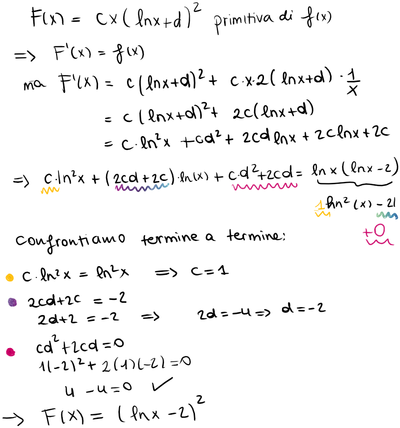 F(x) = cx(lnx+d)² primitiva di f(x)
=> F'(x) = f(x)
ma F'(x) = c(lnx+d)² + c·x·2(lnx+d)·1/x
= c(lnx+d)² + 2c(lnx+d)
= c·ln²x + cd² + 2cd lnx + 2c lnx + 2c
=> c·ln²x + (2cd+2c)·ln(x) + c·d²+2cd = lnx(lnx-2)
1·ln²(x) - 2l
+0
Confrontiamo termine a termine:
• c·ln²x = ln²x => c=1
• 2cd+2c = -2
2d+2 = -2 => 2d=-4 => d=-2
• cd²+2cd=0
1(-2)²+2(1)(-2)=0
4 -4=0 ✓
→ F(x) = (lnx-2)²